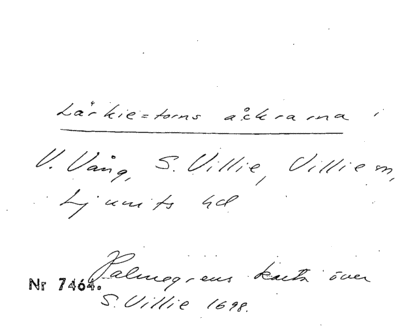 Lärkie=torns åckrarna i
V. Vång, S. Villie, Villie m,
Ljunits hd
Palmegrens karta över
Nr 7464.
S. Villie 1698.